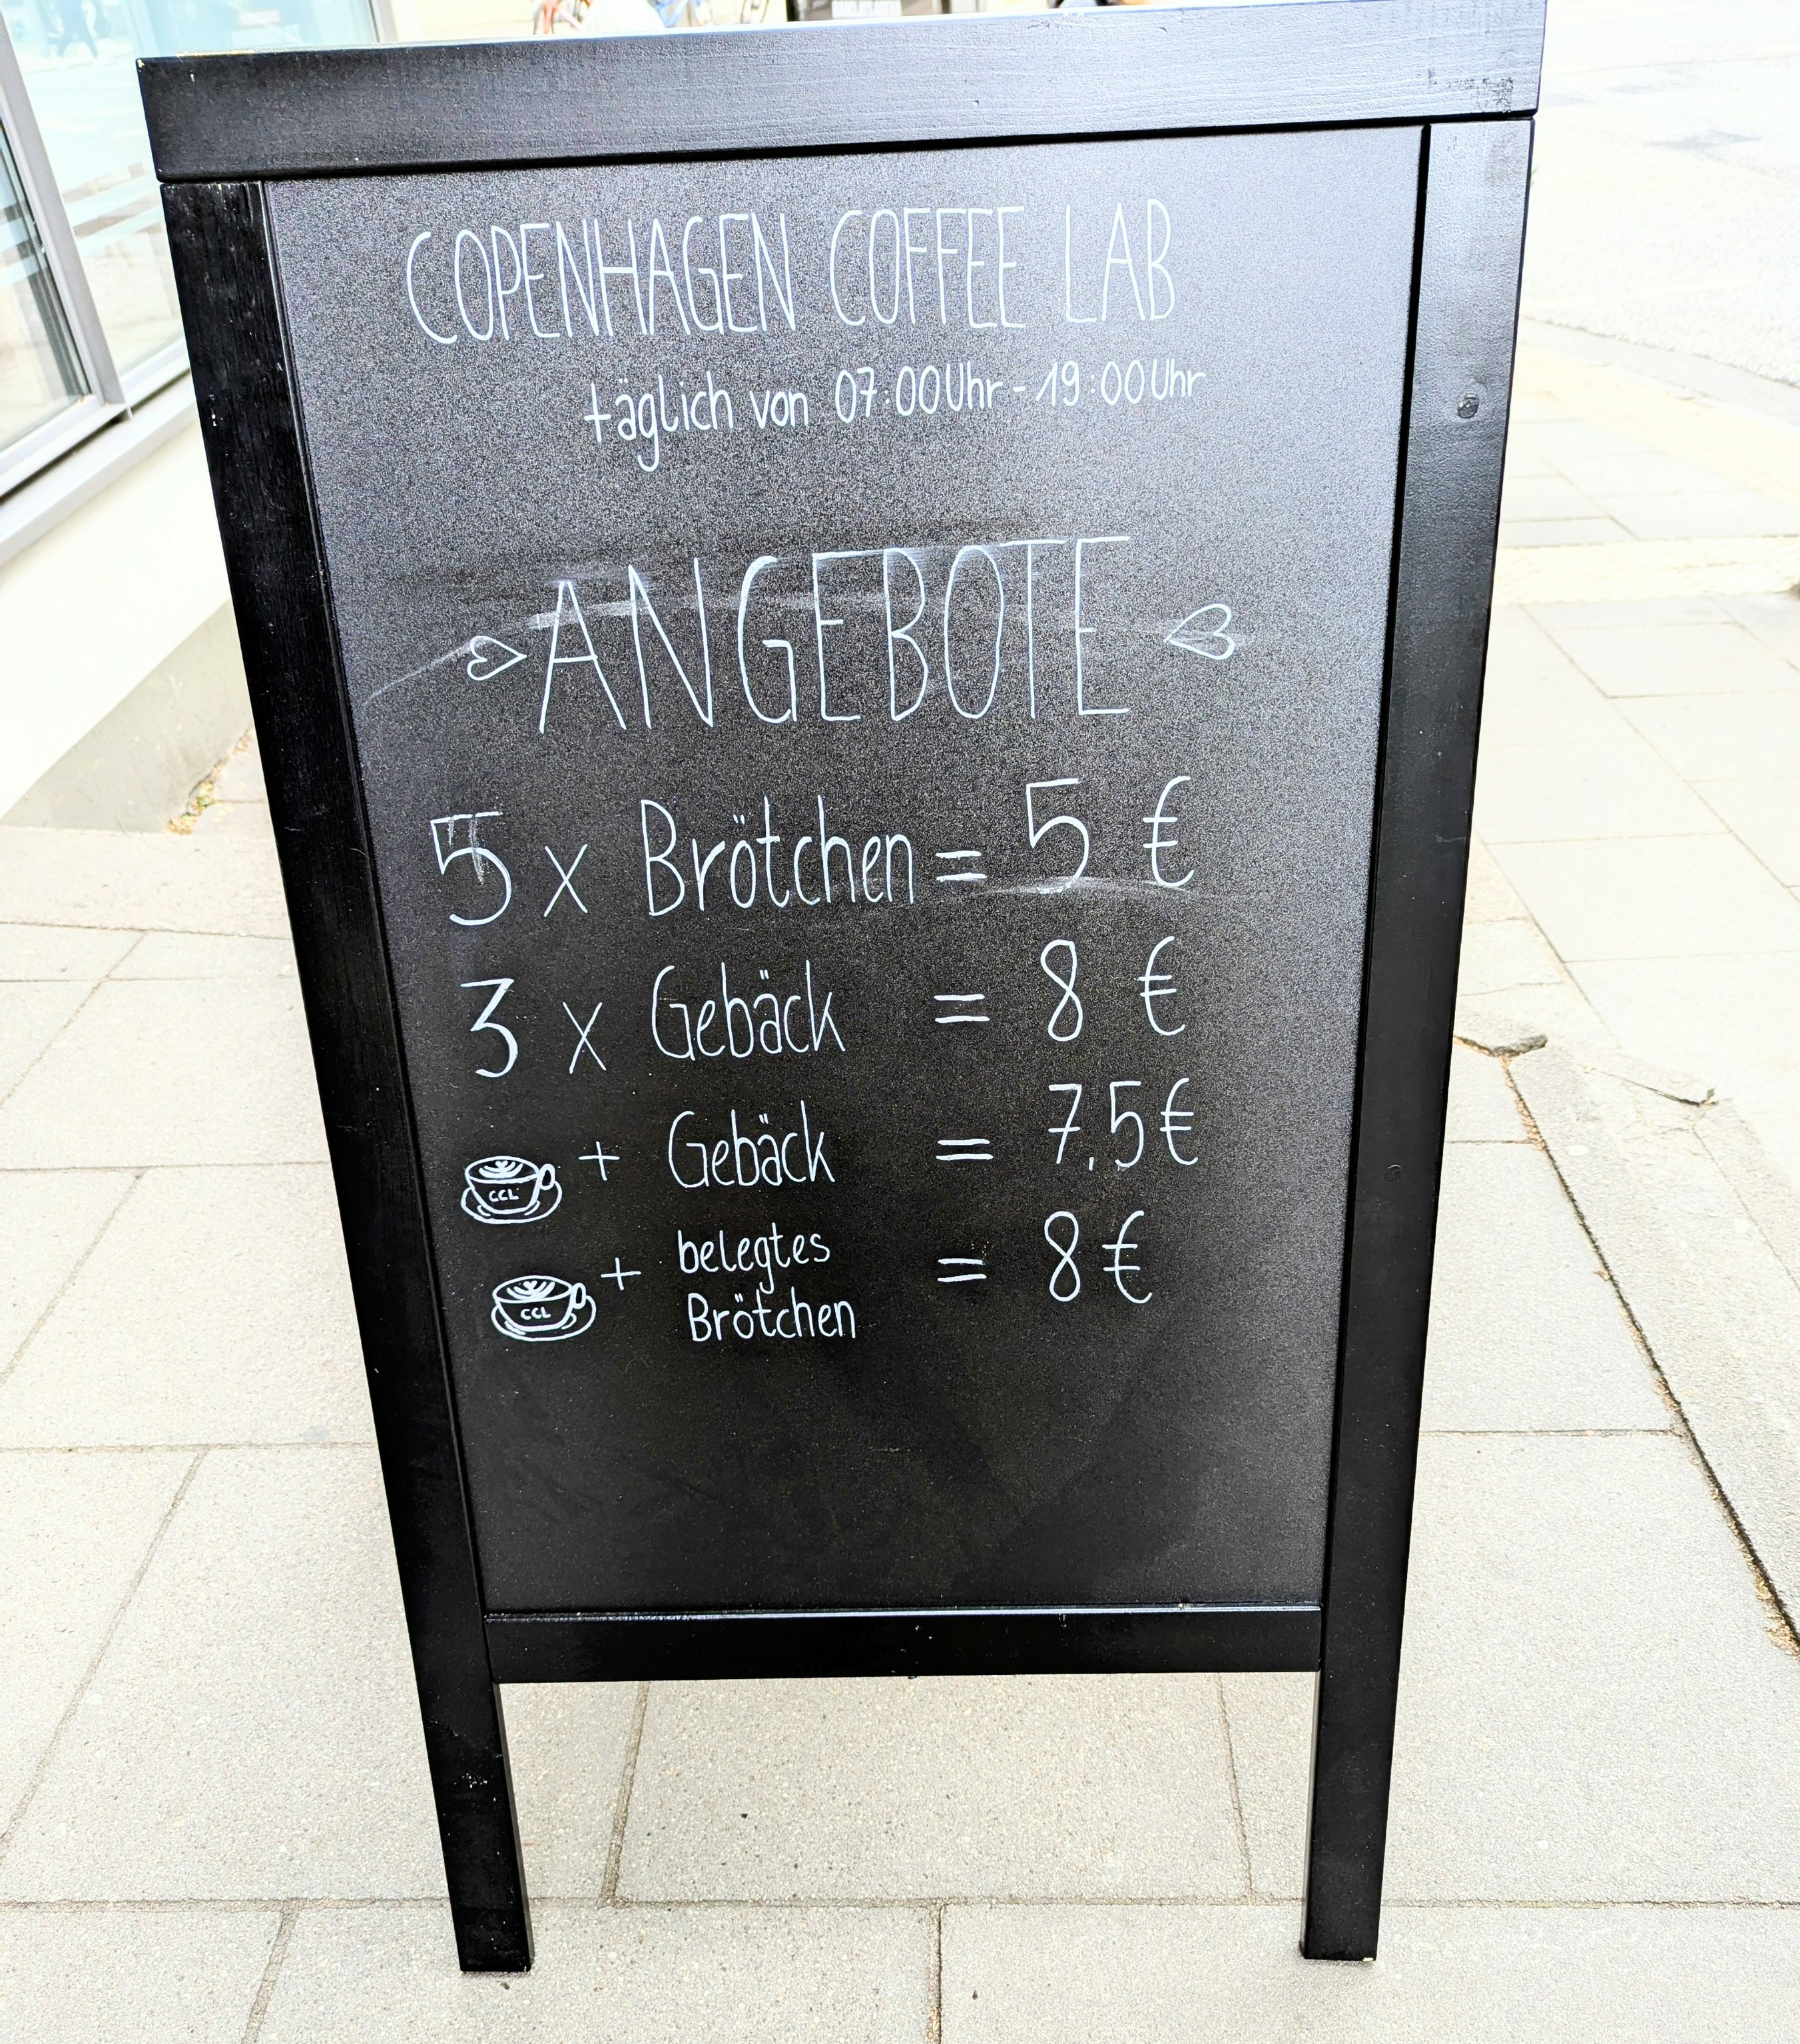 COPENHAGEN COFFEE LAB
täglich von 07:00 Uhr - 19:00 Uhr
ANGEBOTE
5 x Brötchen = 5 €
3 x Gebäck = 8 €
CCL + Gebäck = 7,5 €
CCL + belegtes Brötchen = 8 €